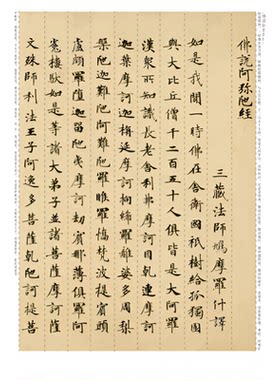 佛說阿弥陁経
三藏法師鳩摩羅什譯
如是我聞一時佛在舍衛國祇樹給孤獨園
與大比丘僧千二百五十人俱皆是大阿羅
漢衆所知識長老舍利弗摩訶目乹連摩訶
迦葉摩訶迦栴延摩訶拘絺羅離婆多周梨
槃陁迦難陁阿難陁羅睺羅憍梵波提賓頭
盧頗羅墮迦留陁夷摩訶劫賓那薄俱羅阿
㝹樓馱如是等諸大弟子并諸菩薩摩訶薩
文殊師利法王子阿逸多菩薩乹陁訶提菩